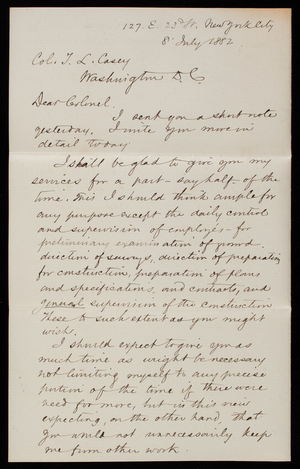 127. E. 23d St. New York City
8 July 1882
Col. T. L. Casey
Washington D.C.
Dear Colonel.
I sent you a short note
yesterday. I write you more in
detail today
I shall be glad to give you my
services for a part - say half - of the
time. This I should think ample for
any purpose except the daily control
and supervision of employes - for
preliminary examination of ground.
direction of surveys, direction of preparation
for construction, preparation of plans
and specifications, and contracts, and
general supervision of the construction
These to such extent as you might
wish.
I should expect to give you as
much time as might be necessary
not limiting myself to any precise
portion of the time if there were
need for more, but in this view
expecting, on the other hand, that
you would not unnecessarily keep
me from other work.